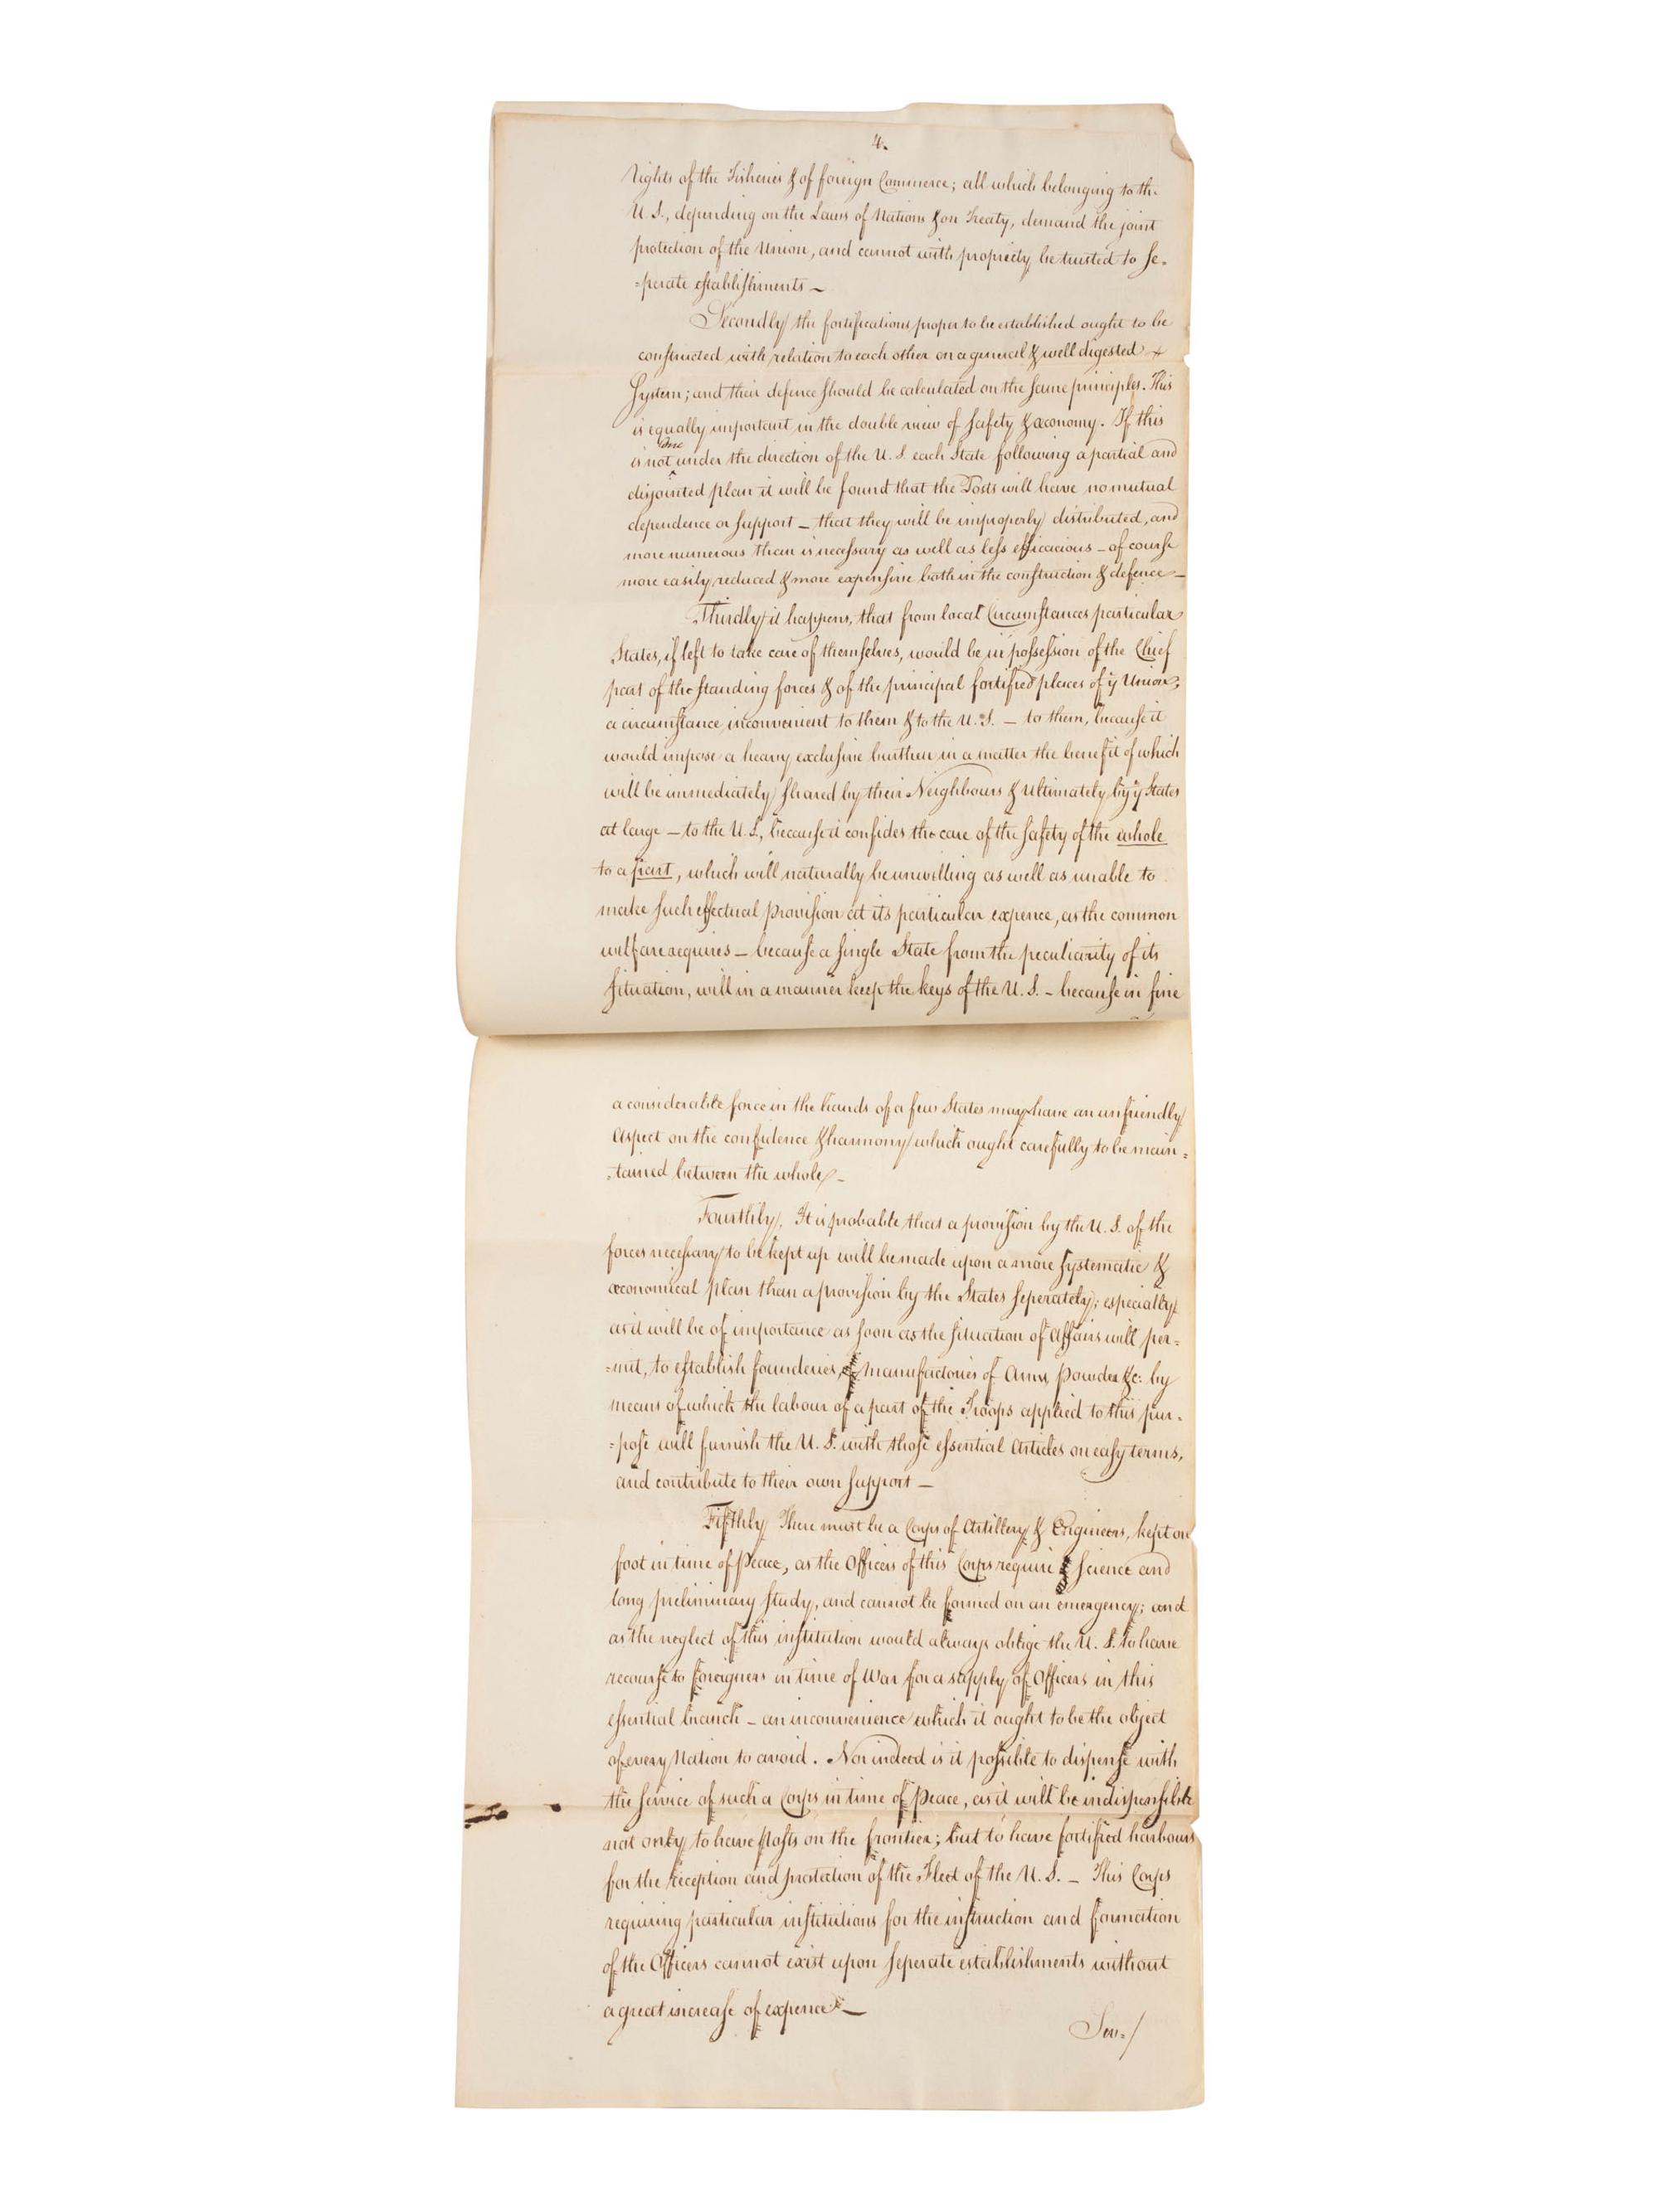 4.
rights of the Fisheries & of foreign Commerce; all which belonging to the
U. S., depending on the Laws of Nations & on Treaty, demand the joint
protection of the Union, and cannot with propriety be trusted to se-
=perate establishments —
Secondly the fortifications proper to be established ought to be
constructed with relation to each other on a general & well digested
System; and their defence should be calculated on the same principles. This
is equally important in the double view of safety & œconomy. If this
one
is not under the direction of the U. S. each State following a partial and
disjointed plan it will be found that the Posts will have no mutual
dependence or support — that they will be improperly distributed, and
more numerous than is necessary as well as less efficacious — of course
more easily reduced & more expensive both in the construction & defence —
Thirdly it happens, that from local Circumstances particular
States, if left to take care of themselves, would be in possession of the Chief
part of the standing forces & of the principal fortified places of ye Union,
a circumstance inconvenient to them & to the U. S. — to them, because it
would impose a heavy exclusive burthen in a matter the benefit of which
will be immediately shared by their Neighbours & Ultimately by ye States
at large — to the U. S., because it confides the care of the safety of the whole
to a part, which will naturally be unwilling as well as unable to
make such effectual provision at its particular expence, as the common
welfare requires — because a single State from the peculiarity of its
situation, will in a manner keep the keys of the U. S. — because in fine
a considerable force in the hands of a few States may have an unfriendly
Aspect on the confidence & harmony which ought carefully to be main=
=tained between the whole —
Fourthly, It is probable that a provision by the U. S. of the
forces necessary to be kept up will be made upon a more systematic &
œconomical plan than a provision by the States seperately; especially
as it will be of importance as soon as the situation of Affairs will per=
=mit, to establish founderies, manufactories of Arms, Powder &c: by
means of which the labour of a part of the Troops applied to this pur=
=pose will furnish the U. S. with those essential Articles on easy terms,
and contribute to their own support —
Fifthly There must be a Corps of Artillery & Engineers, kept on
foot in time of Peace, as the Officers of this Corps require Science and
long preliminary study, and cannot be formed on an emergency; and
as the neglect of this institution would always oblige the U. S. to have
recourse to foreigners in time of War for a supply of Officers in this
essential branch — an inconvenience which it ought to be the object
of every Nation to avoid. Nor indeed is it possible to dispense with
the service of such a Corps in time of Peace, as it will be indispensible
not only to have Posts on the frontier; but to have fortified harbours
for the reception and protection of the Fleet of the U. S. — This Corps
requiring particular institutions for the instruction and formation
of the Officers cannot exist upon seperate establishments without
a great increase of expence —